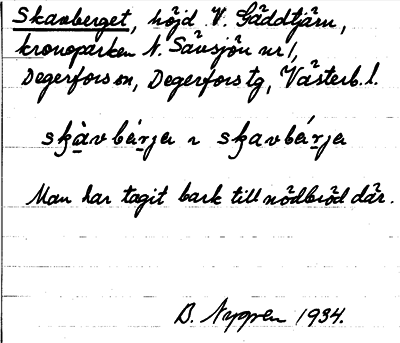 Skavberget, höjd V. Gäddtjärn,
kronoparken N. Sävsjön nr 1,
Degerfors sn, Degerfors tg, Västerb. l.
skàvbá̱rja ~ skavbá̱rja
Man har tagit bark till nödbröd där.
B. Nygren 1934.